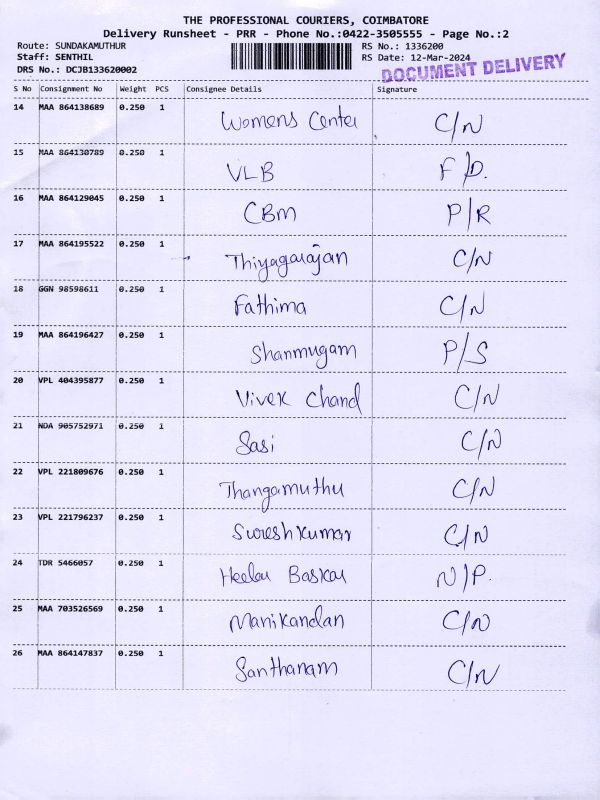 THE PROFESSIONAL COURIERS, COIMBATORE
Delivery Runsheet - PRR - Phone No.:0422-3505555 - Page No.:2
Route: SUNDAKAMUTHUR RS No.: 1336200
Staff: SENTHIL RS Date: 12-Mar-2024
DRS No.: DCJB133620002 DOCUMENT DELIVERY
S No Consignment No Weight PCS Consignee Details Signature
14 MAA 864138689 0.250 1 Womens Center C/N
15 MAA 864130789 0.250 1 VLB F/D.
16 MAA 864129045 0.250 1 CBM P/R
17 MAA 864195522 0.250 1 Thiyagarajan C/N
18 GGN 98598611 0.250 1 Fathima C/N
19 MAA 864196427 0.250 1 Shanmugam P/S
20 VPL 404395877 0.250 1 Vivek Chand C/N
21 NDA 905752971 0.250 1 Sasi C/N
22 VPL 221809676 0.250 1 Thangamuthu C/N
23 VPL 221796237 0.250 1 Sureshkumar C/N
24 TDR 5466057 0.250 1 Baskar N/P.
25 MAA 703526569 0.250 1 Manikandan C/N
26 MAA 864147837 0.250 1 Santhanam C/N